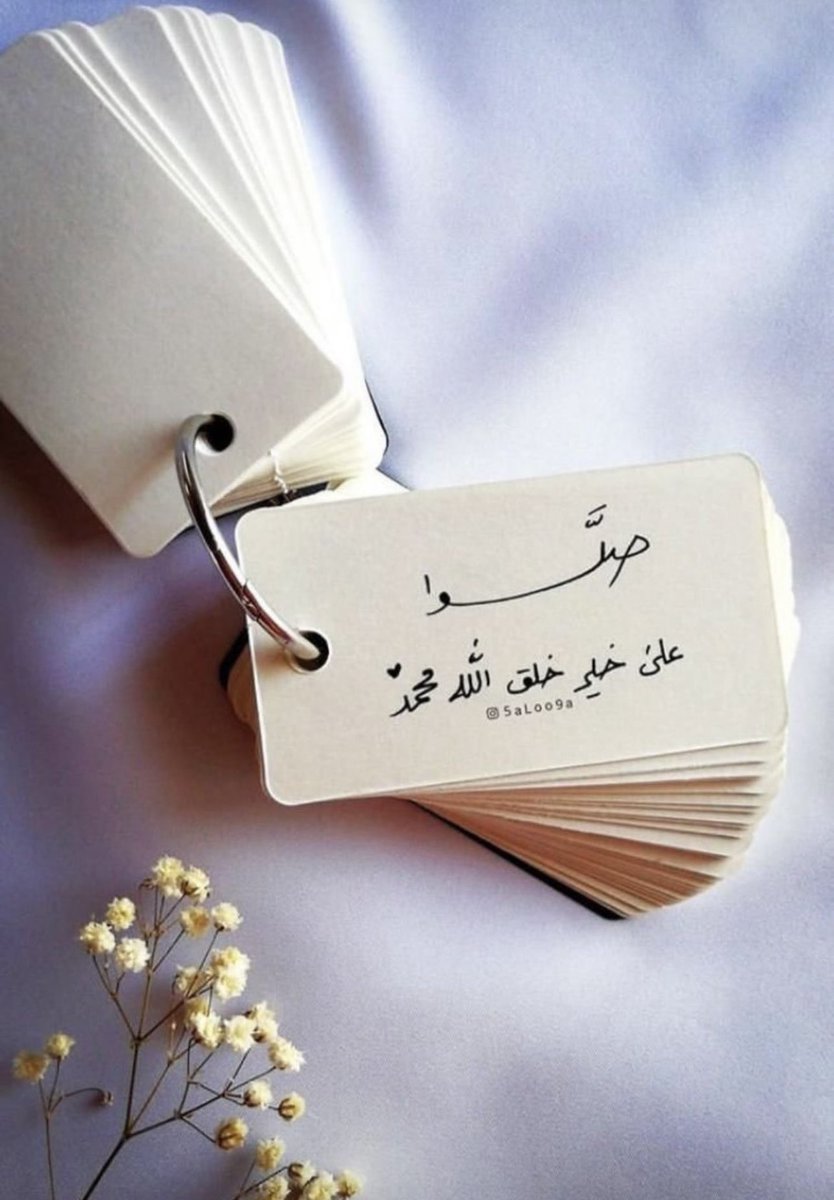 صلَّوا
على خير خلق اللَّه محمد ♥
5aLoo9a